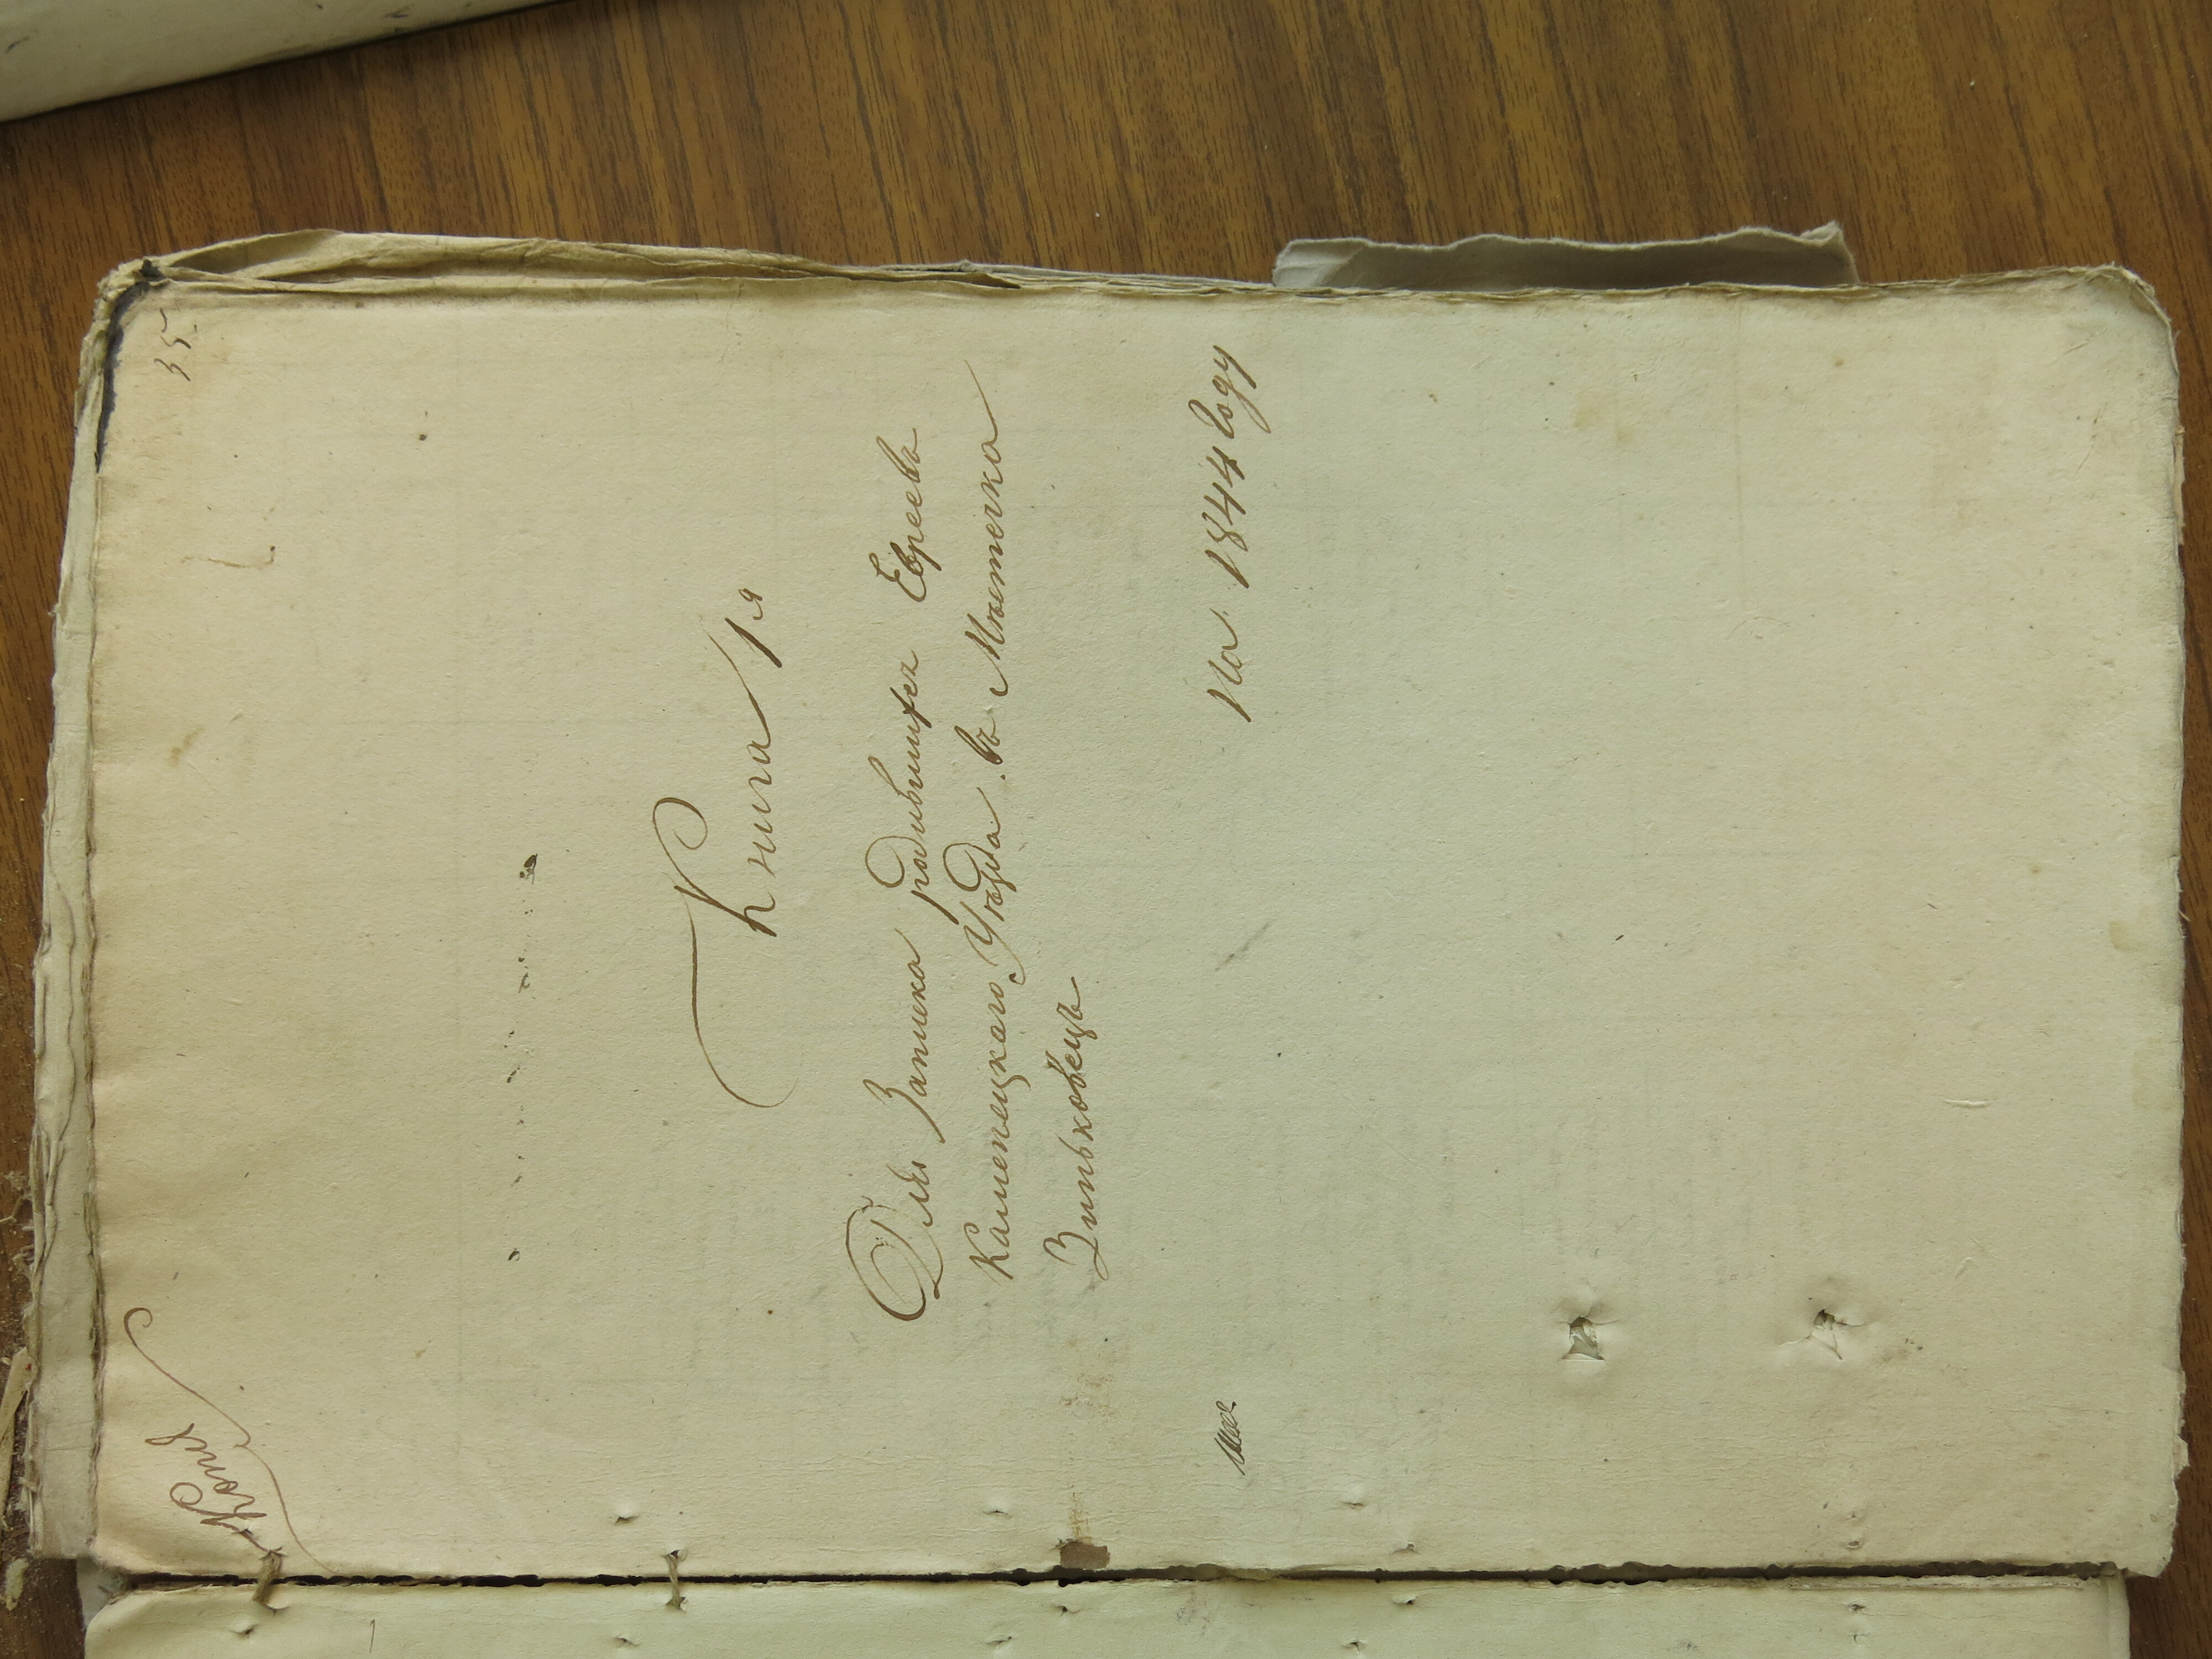 Копія
35.
Книга 1я
Для Записка родившихся Евреевъ
Каменецкаго Уѣзда въ Мѣстечка
Зиньковецъ
На 1844 году